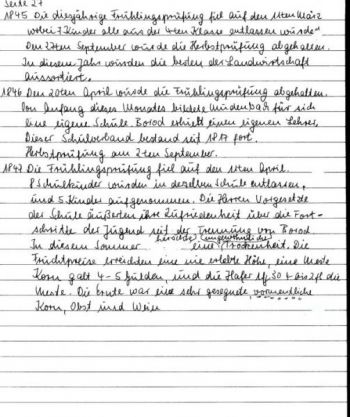 Seite 27
1845 Die diesjährige Frühlingsprüfung fiel auf den 11ten März
wobei 7 Kinder alle aus der 4ten Klasse entlassen wurde
Den 17ten September wurde die Herbstprüfung abgehalten.
In diesem Jahre wurden die besten der Landwirtschaft
aussortiert.
1846 Den 20ten April wurde die Frühlingsprüfung abgehalten.
Von Anfang dieses Monates bildete Mündenbar für sich
eine eigene Schule Borod erhielt einen eigenen Lehrer.
Dieser Schulverband bestand seit 1817 fort.
Herbstprüfung am 2ten September.
1847 Die Frühlingsprüfung fiel auf den 11ten April.
8 Schulkinder wurden in derselben Schule entlassen,
und 5 Kinder aufgenommen. Die Herren Vorgesetzte
der Schule äußerten ihre Zufriedenheit über die Fort-
schritte der Jugend seit der Trennung von Borod
In diesem Sommer herrschte eine ungewöhnliche Trockenheit. Die
Fruchtpreise erreichten eine nie erlebte Höhe, eine Meste
Korn galt 4-5 Gulden, und die Hafer 1 fl. 30 + bis 2 fl die
Meste. Die Ernte war eine sehr gesegnete,
Korn, Obst und Wein